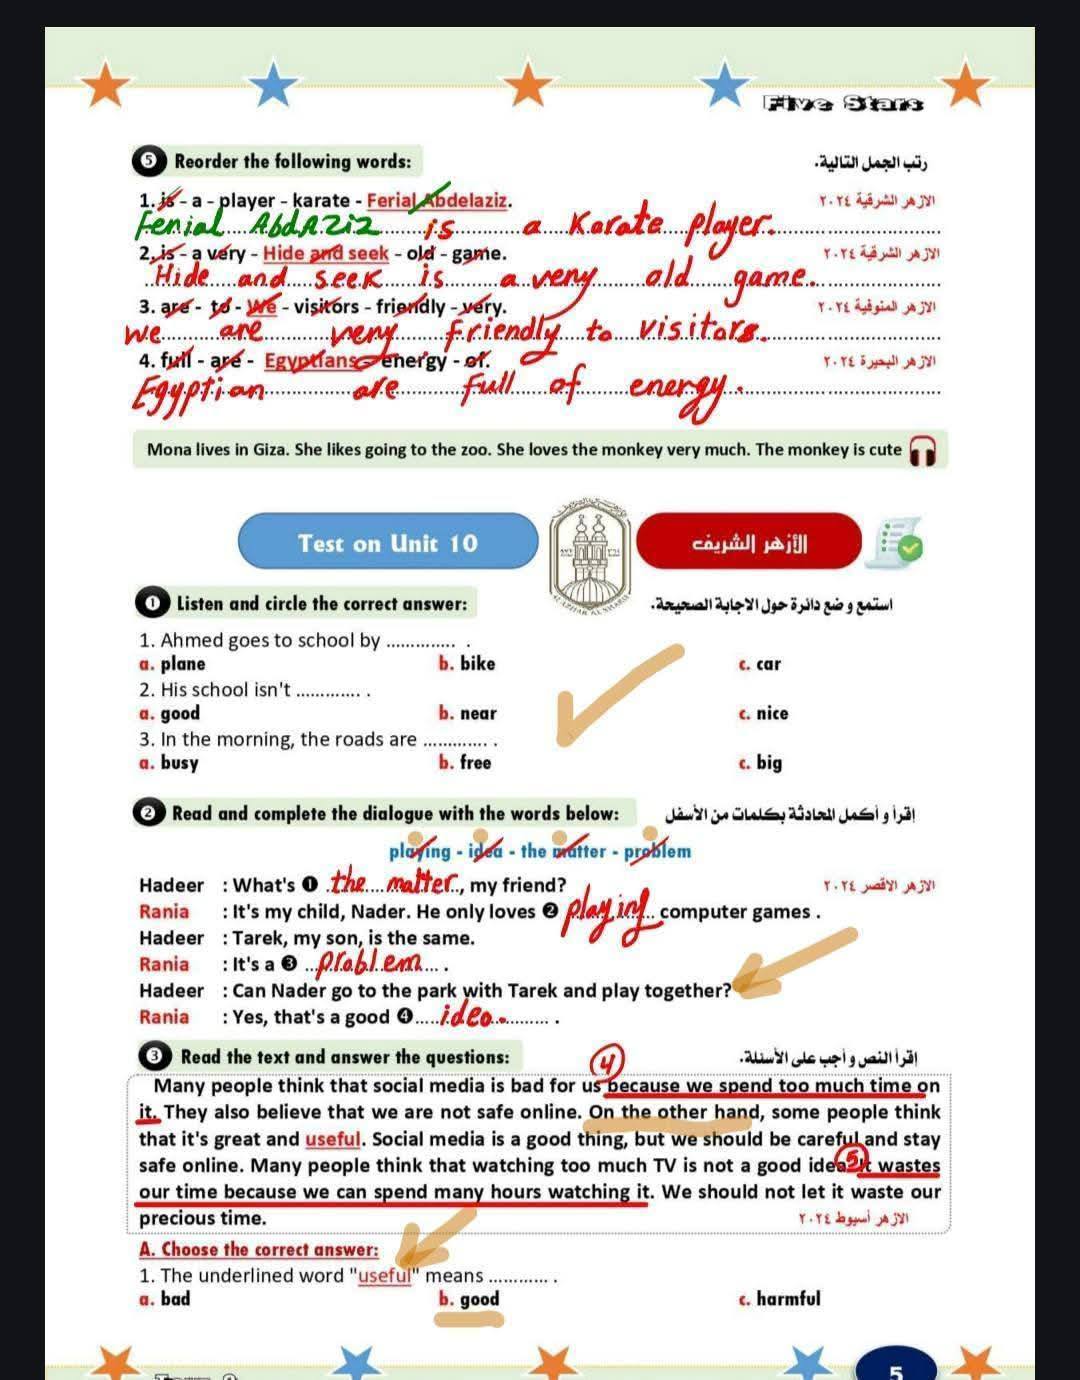 Five Stars
5 Reorder the following words:
رتب الجمل التالية.
1. is - a - player - karate - Ferial Abdelaziz.
الازهر الشرقية ٢٠٢٤
Ferial AbdAziz is a Karate player.
2. is - a very - Hide and seek - old - game.
الازهر الشرقية ٢٠٢٤
Hide and seek is a very old game.
3. are - to - We - visitors - friendly - very.
الازهر المنوفية ٢٠٢٤
we are very friendly to visitors.
4. full - are - Egyptians - energy - of.
الازهر البحيرة ٢٠٢٤
Egyptian are full of energy.
Mona lives in Giza. She likes going to the zoo. She loves the monkey very much. The monkey is cute
Test on Unit 10
الأزهر الشريف
1 Listen and circle the correct answer:
استمع و ضع دائرة حول الاجابة الصحيحة.
1. Ahmed goes to school by .............. .
a. plane b. bike c. car
2. His school isn't ............. .
a. good b. near c. nice
3. In the morning, the roads are ............. .
a. busy b. free c. big
2 Read and complete the dialogue with the words below:
إقرأ و أكمل المحادثة بكلمات من الأسفل
playing - idea - the matter - problem
Hadeer : What's 1 the matter, my friend?
الازهر الاقصر ٢٠٢٤
Rania : It's my child, Nader. He only loves 2 playing computer games .
Hadeer : Tarek, my son, is the same.
Rania : It's a 3 problem .
Hadeer : Can Nader go to the park with Tarek and play together?
Rania : Yes, that's a good 4 idea .
3 Read the text and answer the questions:
إقرأ النص و أجب على الأسئلة.
4
Many people think that social media is bad for us because we spend too much time on
it. They also believe that we are not safe online. On the other hand, some people think
that it's great and useful. Social media is a good thing, but we should be careful and stay
safe online. Many people think that watching too much TV is not a good idea. 5 It wastes
our time because we can spend many hours watching it. We should not let it waste our
precious time.
الازهر أسيوط ٢٠٢٤
A. Choose the correct answer:
1. The underlined word "useful" means ............ .
a. bad b. good c. harmful
5